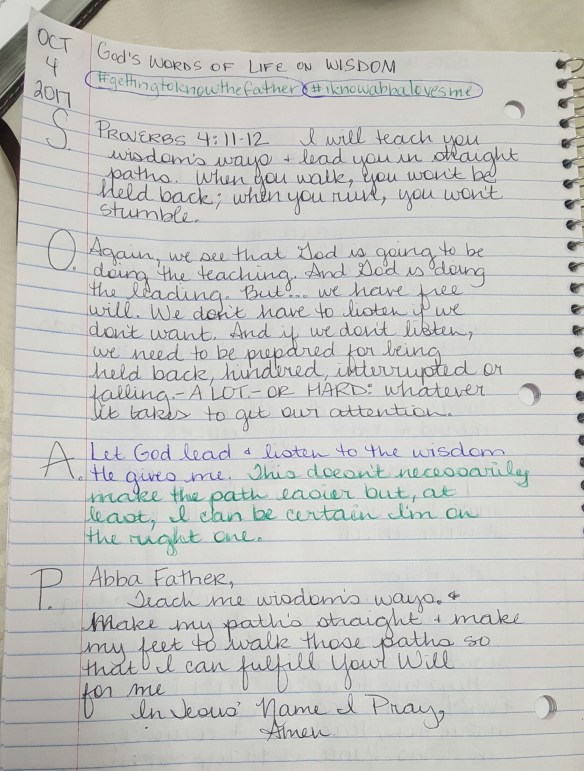 OCT
4
2017
God's Words of Life on Wisdom
#gettingtoknowthefather #iknowabbalovesme
S. Proverbs 4:11-12 I will teach you
wisdom's ways + lead you in straight
paths. When you walk, you won't be
held back; when you run, you won't
stumble.
O. Again, we see that God is going to be
doing the teaching. And God is doing
the leading. But... we have free
will. We don't have to listen if we
don't want. And if we don't listen,
we need to be prepared for being
held back, hindered, interrupted or
falling - A LOT - OR HARD: whatever
it takes to get our attention.
A. Let God lead & listen to the wisdom
He gives me. This doesn't necessarily
make the path easier but, at
least, I can be certain I'm on
the right one.
P. Abba Father,
Teach me wisdom's ways. &
Make my path's straight + make
my feet to walk those paths so
that I can fulfill Your Will
for me
In Jesus' Name I Pray,
Amen